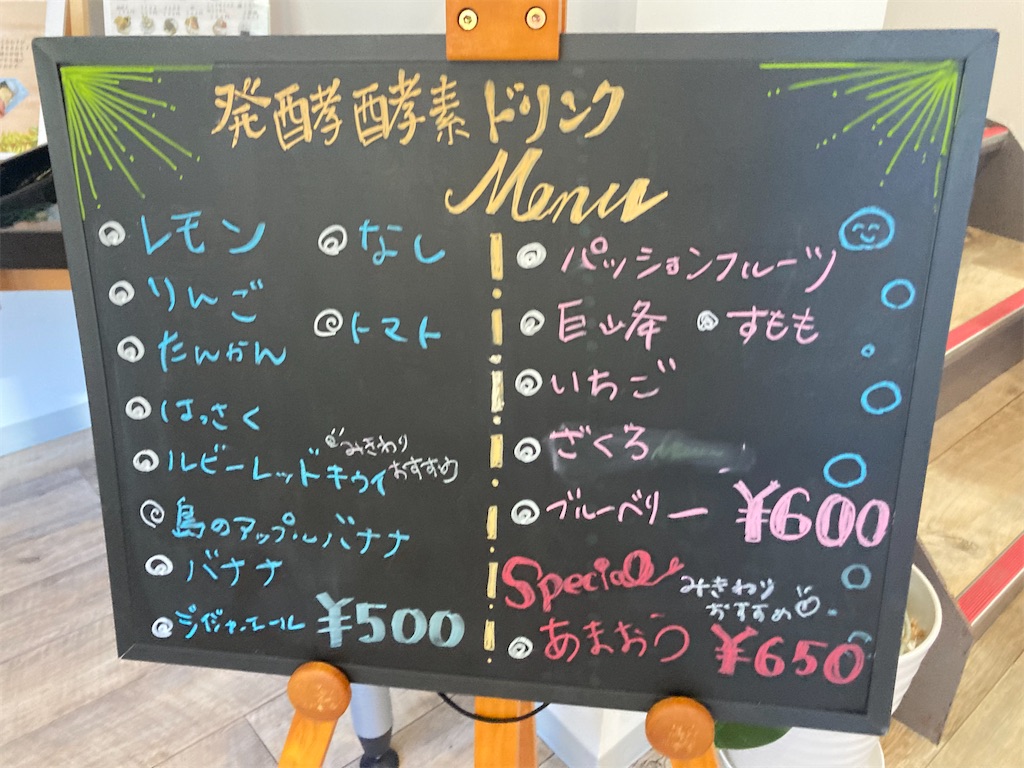 発酵酵素ドリンク
Menu
レモン
なし
りんご
トマト
たんかん
はっさく
ルビーレッドキウイ
みきわり
おすすめ
島のアップルバナナ
バナナ
ジンジャーエール
¥500
パッションフルーツ
巨峰 すもも
いちご
ざくろ
ブルーベリー
¥600
Special
みきわり
おすすめ
あまおう
¥650